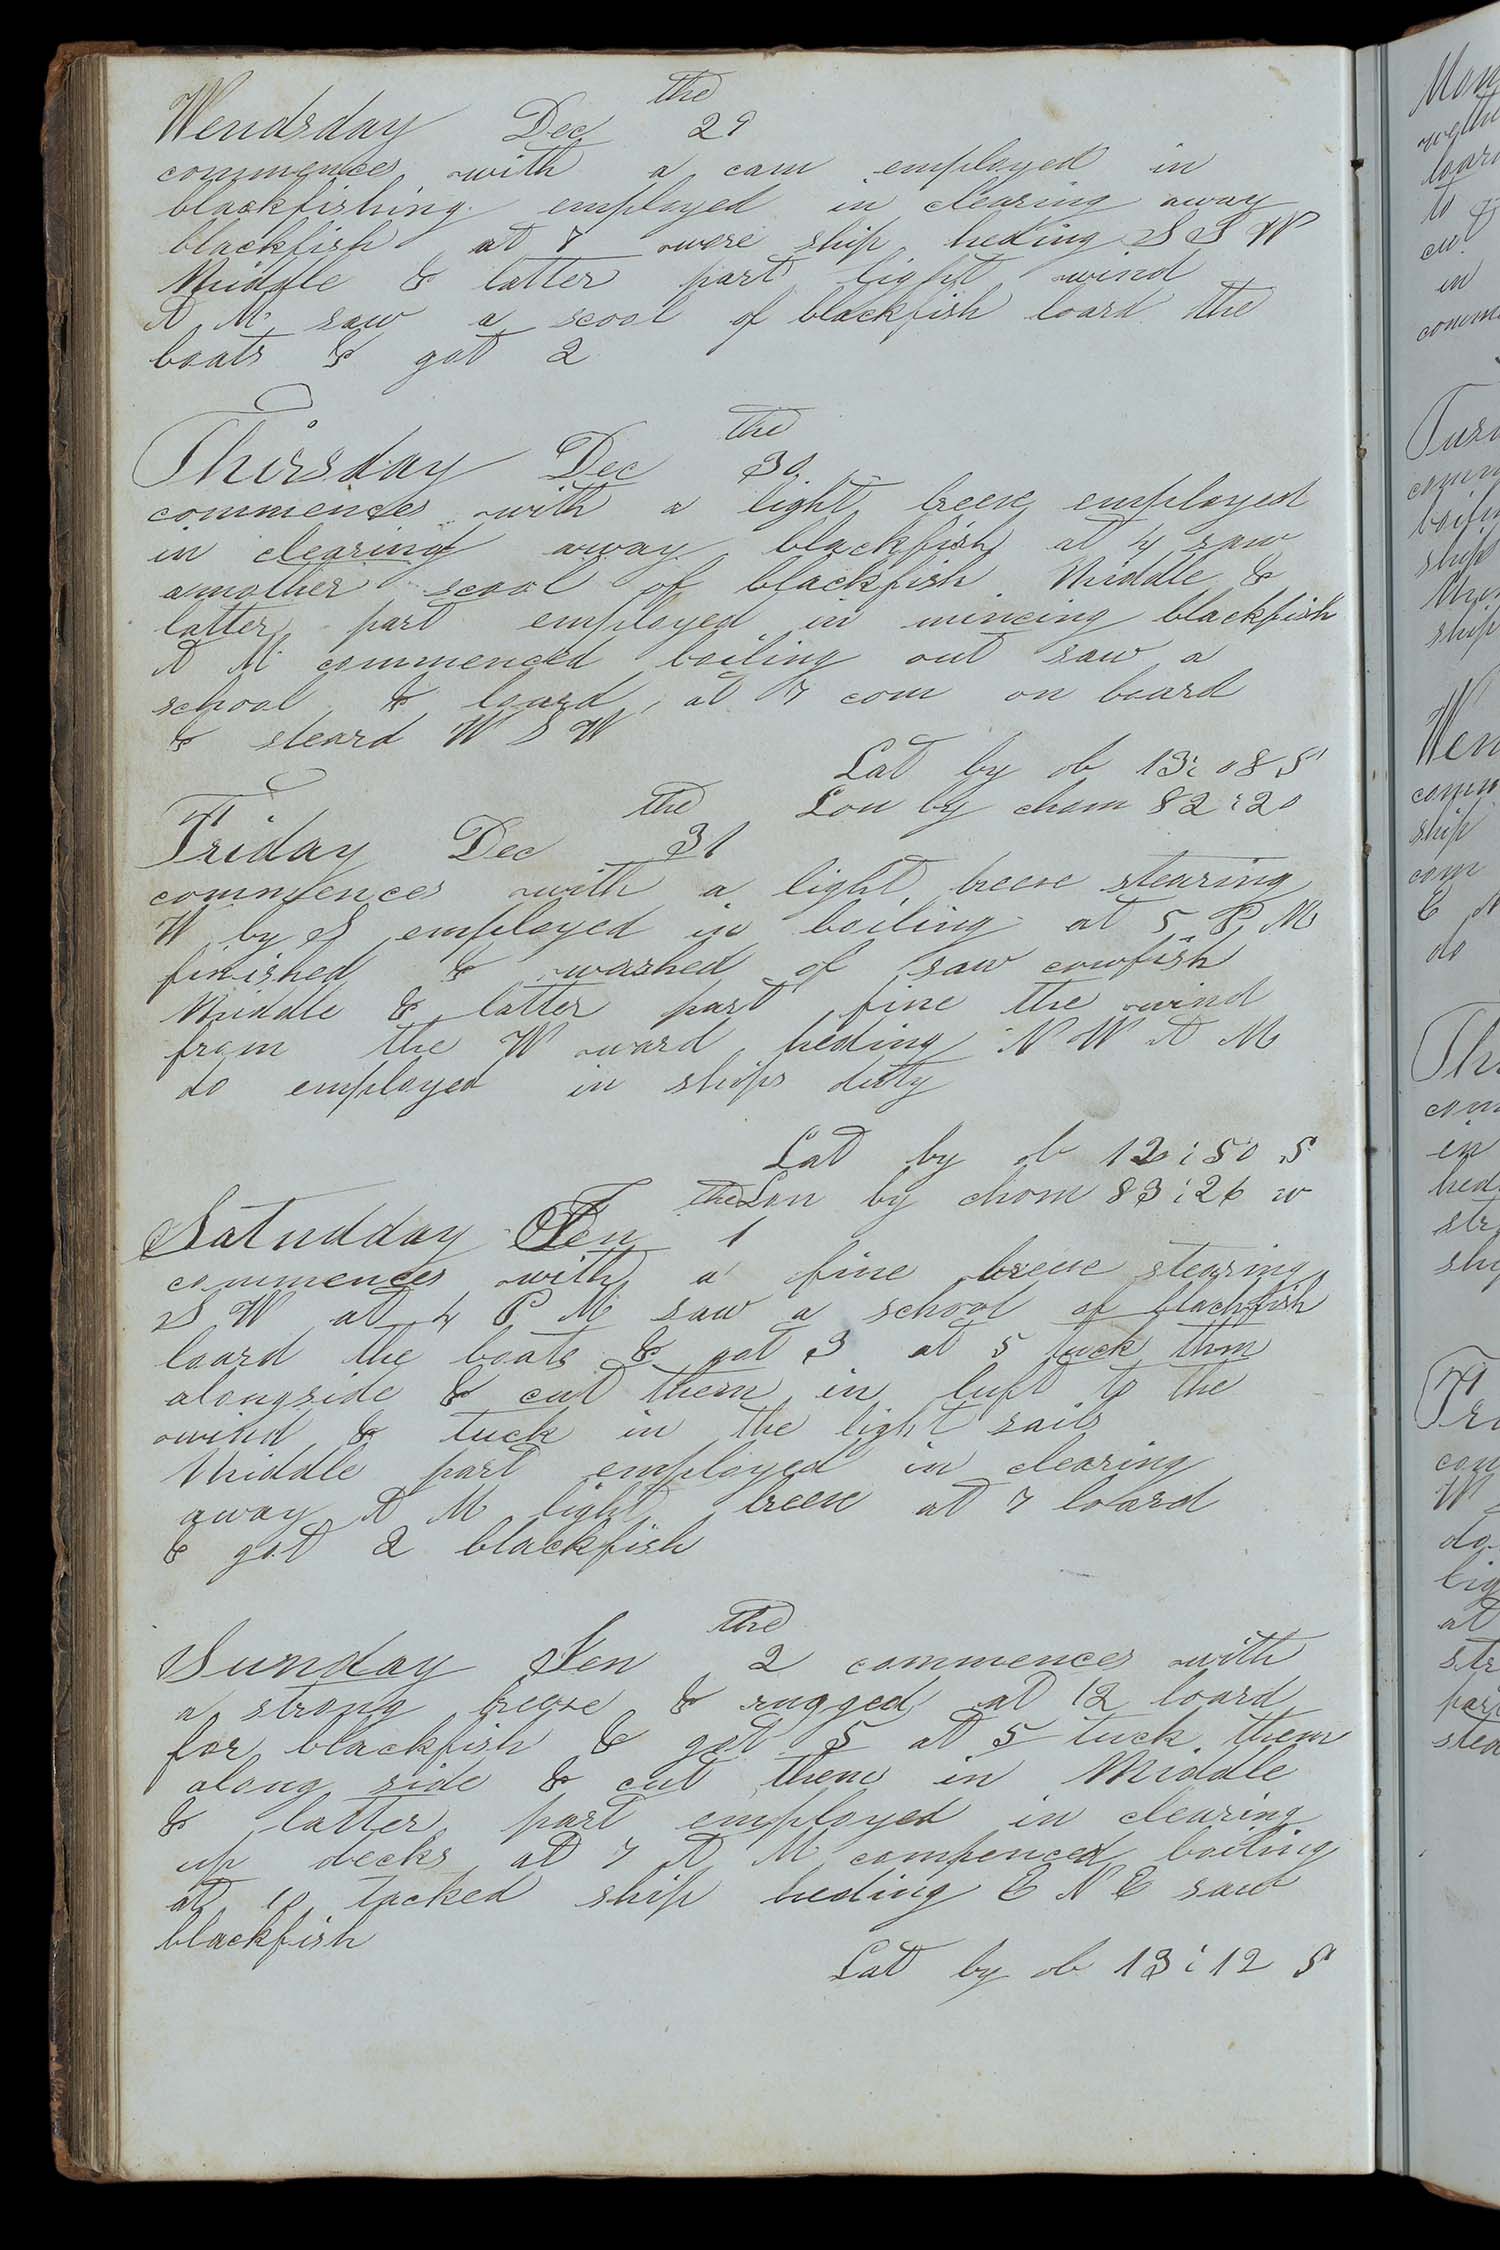 Wendsday Dec the 29
commences with a cam employed in
blackfishing employed in clearing away
blackfish at 7 wore ship heding S S W
Middle & latter part light wind
A M saw a scool of blackfish loard the
boats & got 2
Thirsday Dec the 30
commences with a light breese employed
in clearing away blackfish at 4 saw
amother scool of blackfish Middle &
latter part employed in mincing blackfish
A M commenced boiling out saw a
school & loard at 7 com on board
& steard W S W
Lat by ob 13:08 S
Lon by chom 82:20
Friday Dec the 31
commences with a light breese stearing
W by S employed in boiling at 5 P M
finished & washed of saw cowfish
Middle & latter part fine the wind
from the W ward heding N W A M
do employed in ships duty
Lat by ob 12:50 S
Lon by chom 83:26 w
Satudday Jen the 1
commences with a fine breese stearing
S W at 4 P M saw a school of blackfish
loard the boats & got 3 at 5 tuck thm
alongside & cut them in luft to the
wind & tuck in the light sails
Middle part employed in clearing
away A M light breese at 7 loard
& got 2 blackfish
Sunday Jen the 2 commences with
a strong breese & rugged at 12 loard
for blackfish & got 5 at 5 tuck them
along side & cut them in Middle
& latter part employed in clearing
up decks at 7 A M compenced boiling
at 10 tacked ship heding E N E saw
blackfish
Lat by ob 13:12 S
Mon
to
cut
in
comm
ship
ship
Wen
comm
ship
com
do
Thi
com
in
hed
Fri
com
W
do
lig
at